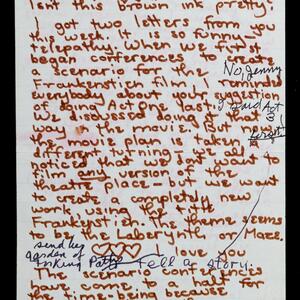 Isn't this brown ink pretty?
I got two letters from you
this week. It is so funny—
telepathy. When we first
began conferences to create
a scenario for the
Frankenstein film, I told
Everybody about your suggestion
of doing Act One last.
We discussed doing it that
way the movie. But now
the movie plan is taken
different turning. We all
notice that we don't want to
film any version of the
theatre place—but we want
to create a completely new
work using the
Frankenstein. The theme seems
to be the Labyrinth, or Maze.
I love you
The scenario conferences
have come to a halt for
the time-being because
No, Jenny
I said Act
3!
send her
garden of
forking Paths
tell a story.